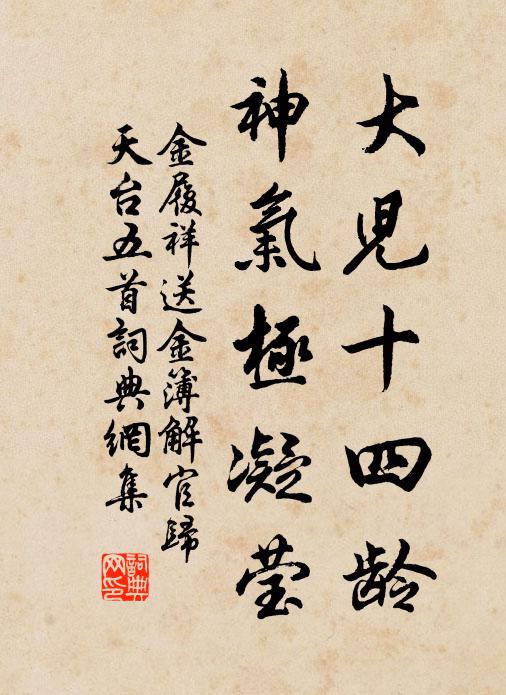 大児十四龄
神氣極凝莹
金履祥送金簿解官歸
天台五首詞典網集
詞典网印